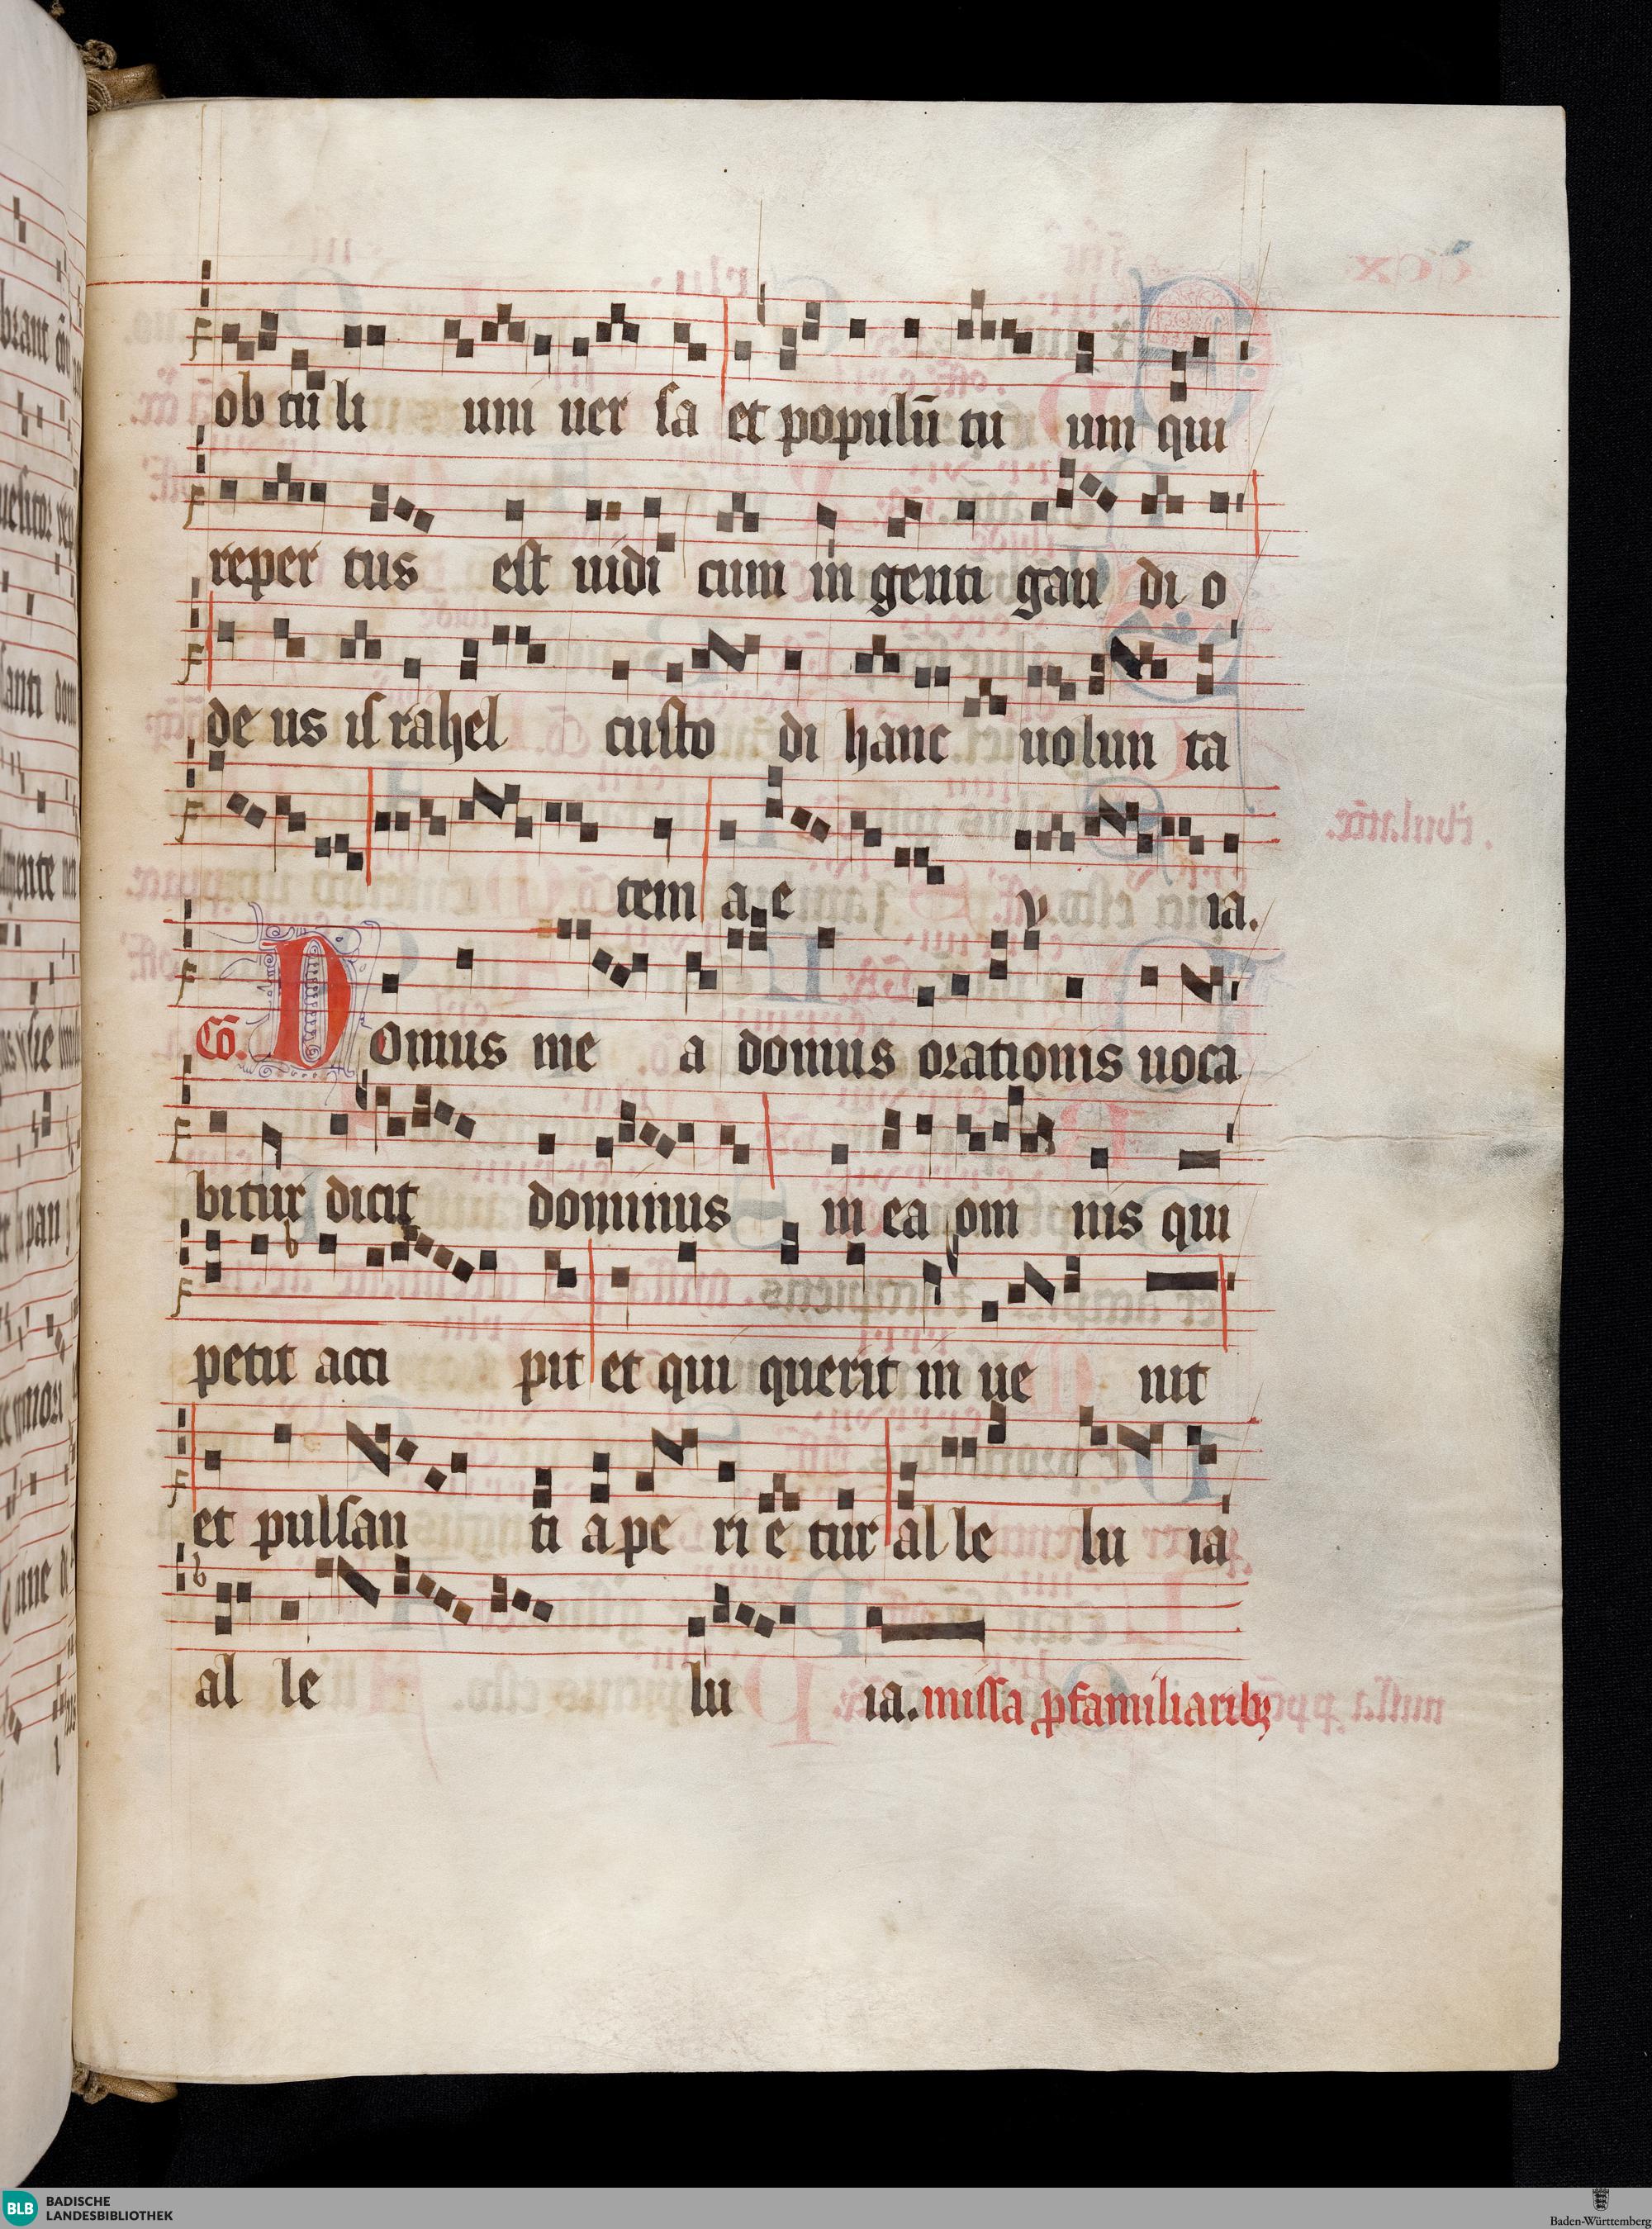 ob tu li uni uer sa et populū tu um qui
reper tus est uidi cum in genti gau di o
de us is rahel custo di hanc uolun ta
tem a e v ia.
Cō. Domus me a domus orationis uoca
bitur dicit dominus in ea om nis qui
petit acci pit et qui querit in ue nit
et pulsan ti a pe ri e tur al le lu ia
al le lu ia. missa ꝓ familiaribꝫ
BLB BADISCHE
LANDESBIBLIOTHEK
Baden-Württemberg